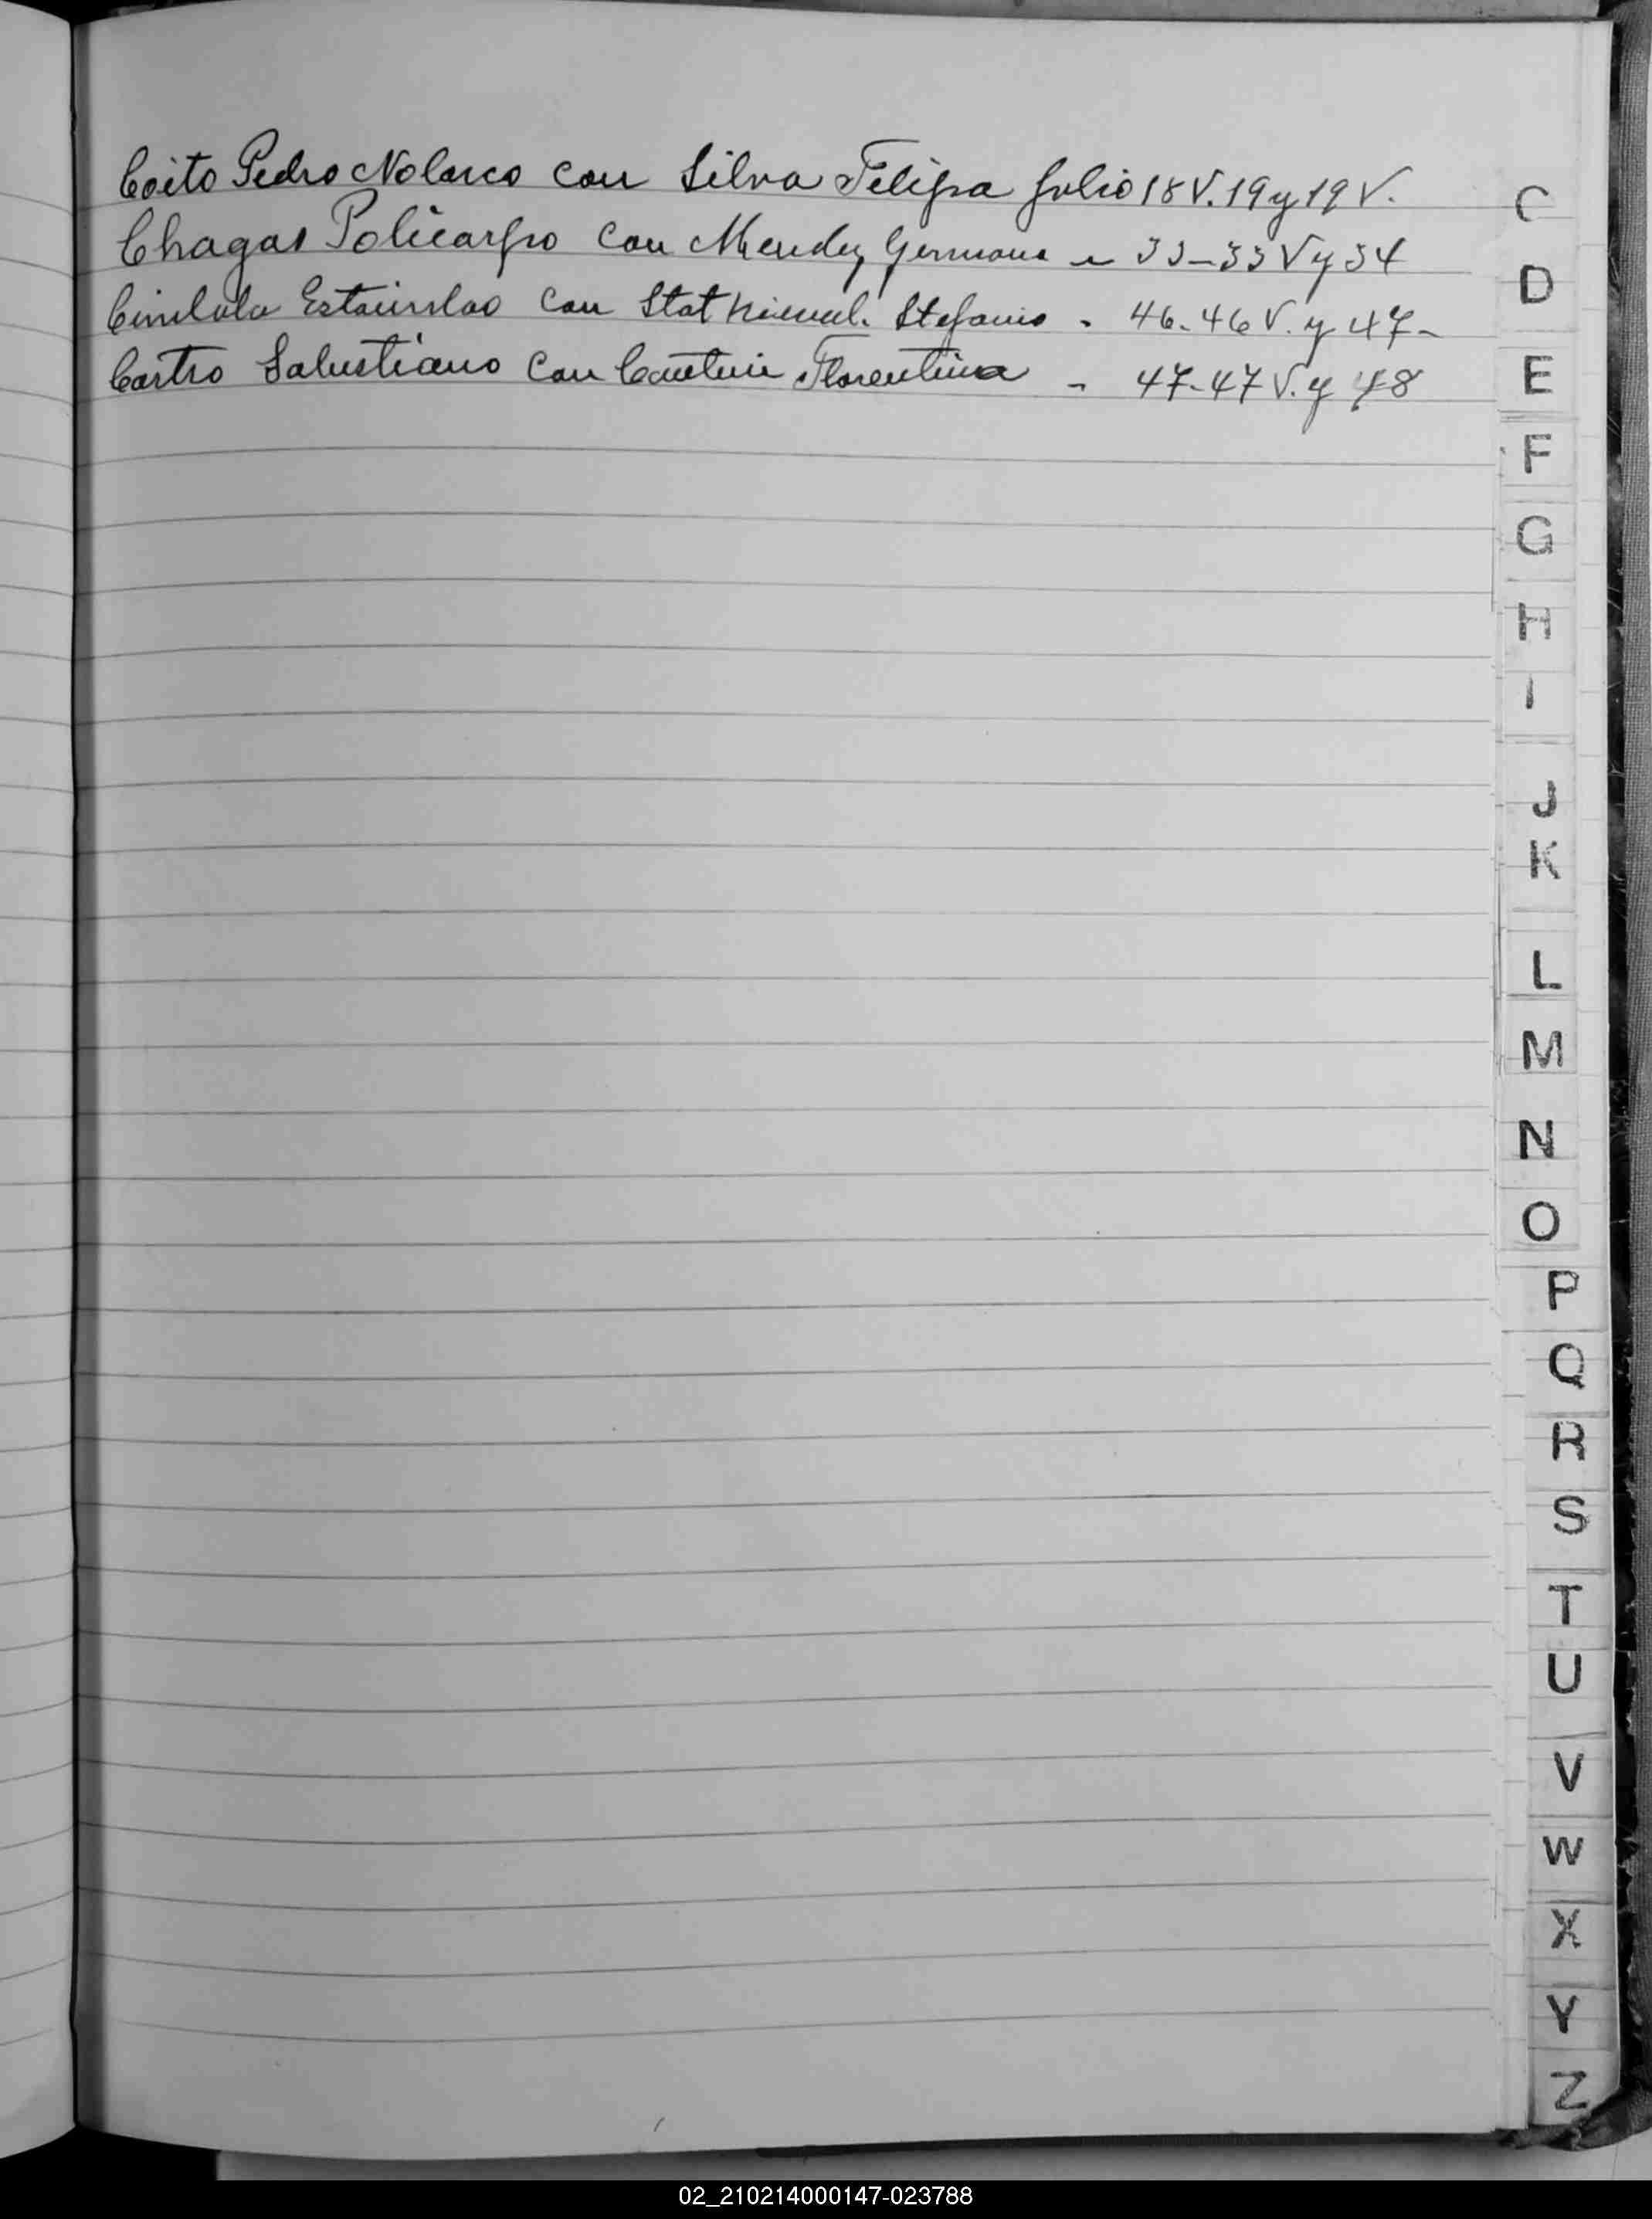 Coito Pedro Nolasco con Silva Felipa folio 18 V. 19 y 19 V.
Chagas Policarpo con Mendez Germana " 33-33 V y 34
Estanislao con Stefania - 46-46 V. y 47-
Castro Salustiano con Florentina - 47-47 V. y 48
C
D
E
F
G
H
I
J
K
L
M
N
O
P
Q
R
S
T
U
V
W
X
Y
Z
02_210214000147-023788